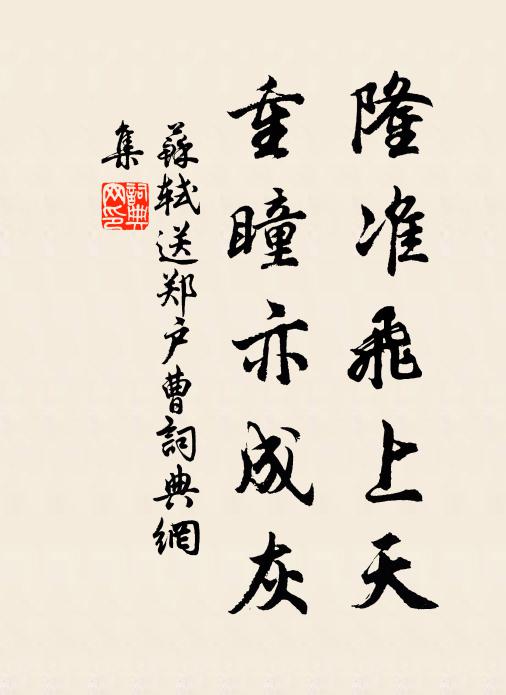 隆准飛上天
重瞳亦成灰
蘇軾送郑户曹詞典網
集
詞典
网印